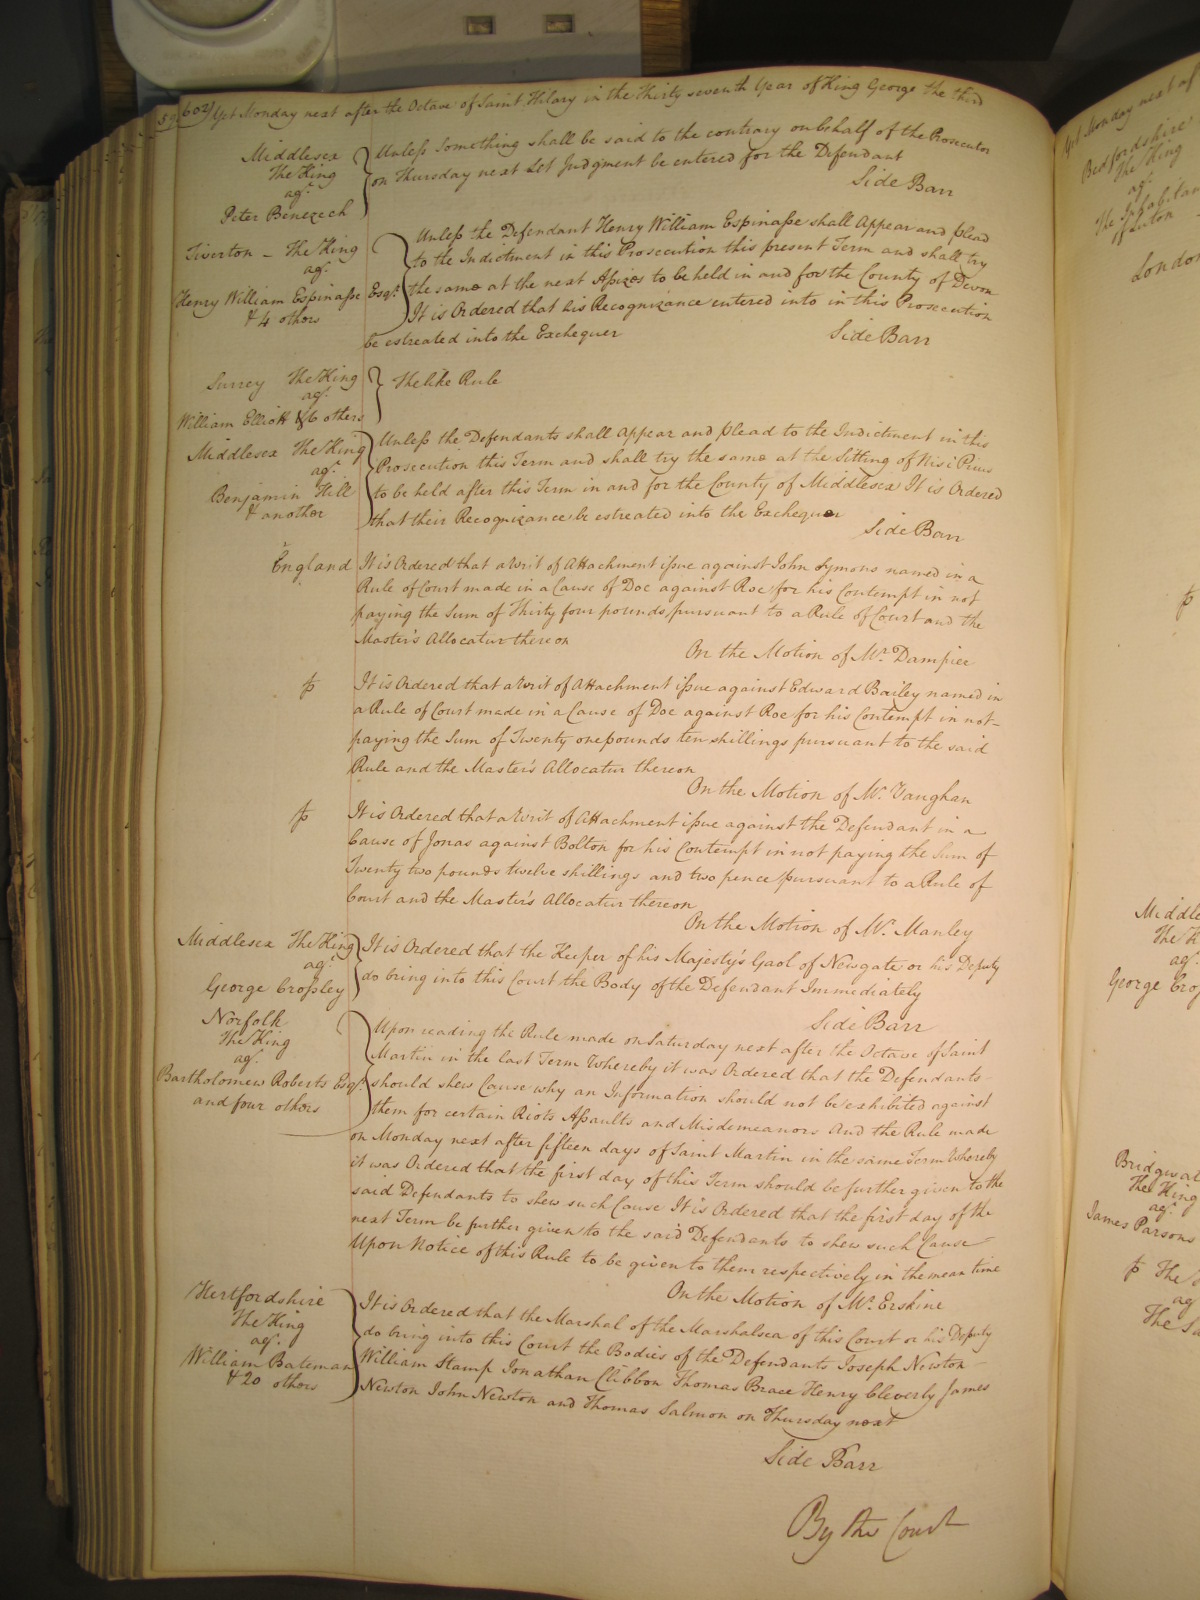 602 Yet Monday next after the Octave of Saint Hilary in the Thirty seventh Year of King George the third
Middlesex
The King
agt.
Peter Benezech
Unless something shall be said to the contrary on behalf of the Prosecutor
on Thursday next Let Judgment be entered for the Defendant
Side Barr
Tiverton – The King
agt.
Henry William Espinasse Esqr.
& 4 others
Unless the Defendant Henry William Espinasse shall Appear and plead
to the Indictment in this Prosecution this present Term and shall try
the same at the next Assizes to be held in and for the County of Devon
It is Ordered that his Recognizance entered into in this Prosecution
be estreated into the Exchequer
Side Barr
Surrey The King
agt.
William Elliott & 6 others
The like Rule
Middlesex The King
agt.
Benjamin Hill
& another
Unless the Defendants shall Appear and plead to the Indictment in this
Prosecution this Term and shall try the same at the Sitting of Nisi Prius
to be held after this Term in and for the County of Middlesex It is Ordered
that their Recognizance be estreated into the Exchequer
Side Barr
England
It is Ordered that a Writ of Attachment issue against John Symons named in a
Rule of Court made in a Cause of Doe against Roe for his Contempt in not
paying the Sum of Thirty four pounds pursuant to a Rule of Court and the
Master's Allocatur thereon
On the Motion of Mr. Dampier
It is Ordered that a Writ of Attachment issue against Edward Bailey named in
a Rule of Court made in a Cause of Doe against Roe for his Contempt in not
paying the Sum of Twenty one pounds ten shillings pursuant to the said
Rule and the Master's Allocatur thereon
On the Motion of Mr. Vaughan
It is Ordered that a Writ of Attachment issue against the Defendant in a
Cause of Jonas against Bolton for his Contempt in not paying the Sum of
Twenty two pounds twelve shillings and two pence pursuant to a Rule of
Court and the Master's Allocatur thereon
On the Motion of Mr. Manley
Middlesex The King
agt.
George Crossley
It is Ordered that the Keeper of his Majesty's Gaol of Newgate or his Deputy
do bring into this Court the Body of the Defendant Immediately
Side Barr
Norfolk
The King
agt.
Bartholomew Roberts Esqr.
and four others
Upon reading the Rule made on Saturday next after the Octave of Saint
Martin in the last Term Whereby it was Ordered that the Defendants
should shew Cause why an Information should not be exhibited against
them for certain Riots Assaults and Misdemeanors And the Rule made
on Monday next after fifteen days of Saint Martin in the same Term Whereby
it was Ordered that the first day of this Term should be further given to the
said Defendants to shew such Cause It is Ordered that the first day of the
next Term be further given to the said Defendants to shew such Cause
Upon Notice of this Rule to be given to them respectively in the mean time
On the Motion of Mr. Erskine
Hertfordshire
The King
agt.
William Bateman
& 20 others
It is Ordered that the Marshal of the Marshalsea of this Court or his Deputy
do bring into this Court the Bodies of the Defendants Joseph Newton
William Stamp Jonathan Clibbon Thomas Brace Henry Cleverly James
Newton John Newton and Thomas Salmon on Thursday next
Side Barr
By the Court
Yet Monday next of
Bedfordshire
The King
agt.
The Inhabitan
of Luton
London
Middle
The K
agt.
George Cros
Bridgwat
The King
agt.
James Parsons
The
ag
The Sa